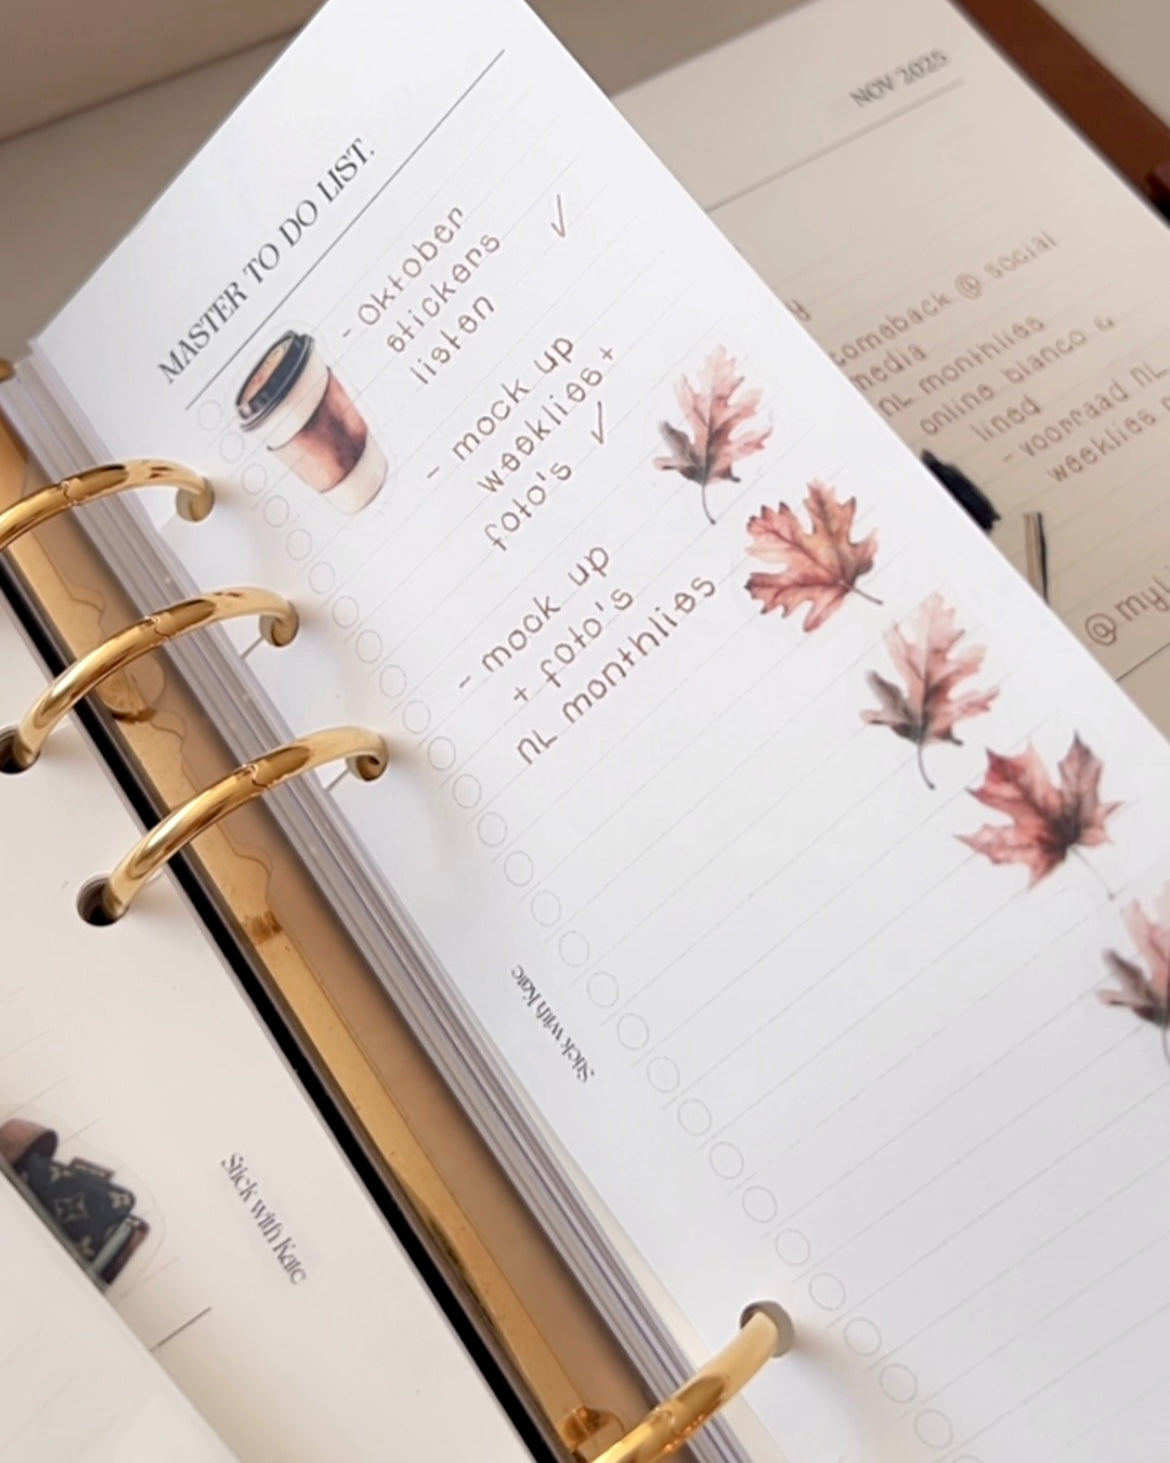 MASTER TO DO LIST.
- Oktober ✓
stickers
listen
- mock up
weeklies +
foto's ✓
- mock up
+ foto's
NL monthlies
Stick with Kate
Stick with Kate
NOV 2025
comeback @ social
media
NL monthlies
online blanco &
lined
- voorraad NL
weeklies